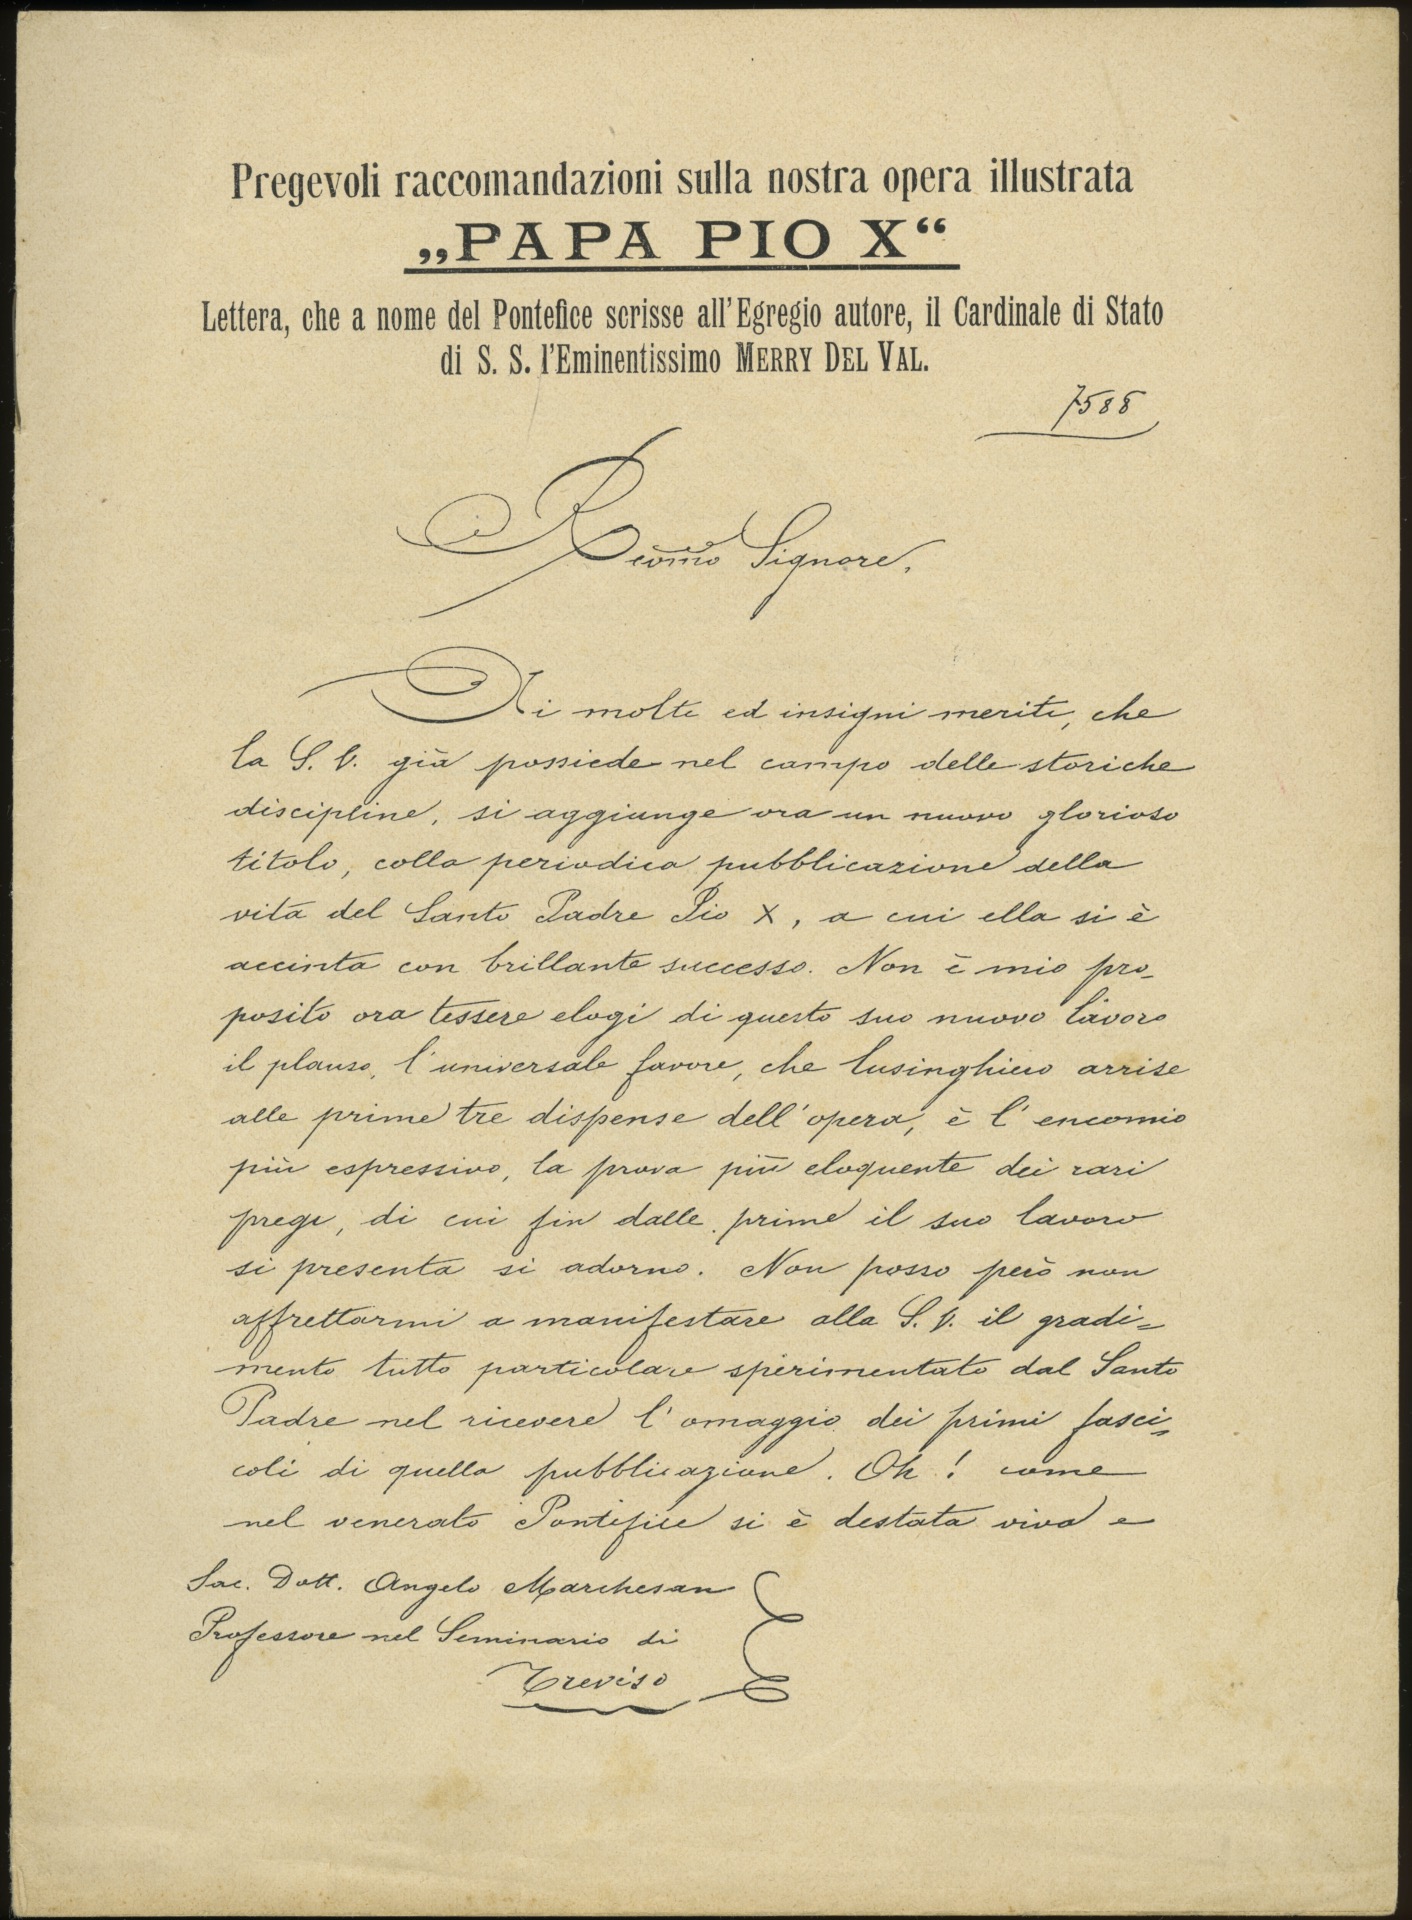 Pregevoli raccomandazioni sulla nostra opera illustrata
„PAPA PIO X“
Lettera, che a nome del Pontefice scrisse all'Egregio autore, il Cardinale di Stato
di S. S. l'Eminentissimo MERRY DEL VAL.
7588
Signore,
Ai molti ed insigni meriti, che
la S. V. già possiede nel campo delle storiche
discipline, si aggiunge ora un nuovo glorioso
titolo, colla periodica pubblicazione della
vita del Santo Padre Pio X, a cui ella si è
accinta con brillante successo. Non è mio pro-
posito ora tessere elogi di questo suo nuovo lavoro
il plauso, l'universale favore, che lusinghiero arrise
alle prime tre dispense dell'opera, è l'encomio
più espressivo, la prova più eloquente dei rari
pregi, di cui fin dalle prime il suo lavoro
si presenta si adorno. Non posso però non
affrettarmi a manifestare alla S. V. il gradi=
mento tutto particolare sperimentato dal Santo
Padre nel ricevere l'omaggio dei primi fasci=
coli di quella pubblicazione. Oh! come
nel venerato Pontefice si è destata viva e
Sac. Dott. Angelo Marchesan
Professore nel Seminario di
Treviso